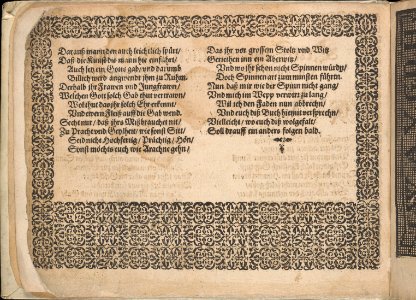 Darauß man den auch leichtlich spürt/
Daß die Kunst bis mann hie einführt/
Auch sey ein Gottes gab/ und darumb
Billich werd angwendt ihm zu Ruhm.
Derhalb ihr Frawen und Jungfrawen/
Welchen Gott solch Gab thut vertrawen/
Wolt hut das ihr solch Ehr erkennt/
Und ewren Fleiß auff die Gab wend.
Secht aber/ daß ihrs Witz brauchet nit/
Zu Pracht und Geylheit/ wie sonst Sitt/
Seid nicht Hochfertig/ Prächtig/ Hön/
Sonst möchts euch wie Arachne gehn/
Das ihr vor grossem Stoltz und Witz
Geriethen inn ein Aberwitz/
Und wo ihr schon nicht Spinnen würdt/
Doch Spinnen art zum minsten führtn.
Nun daß mir wie der Spinn nicht gang/
Und mich im Wepp verwirr zu lang/
Wil ich den Faden nun abbrechn/
Und euch diß Buch hiemit versprechn/
Vielleicht/ wo euch diß wolgefalt/
Soll drauff ein anders folgen bald.